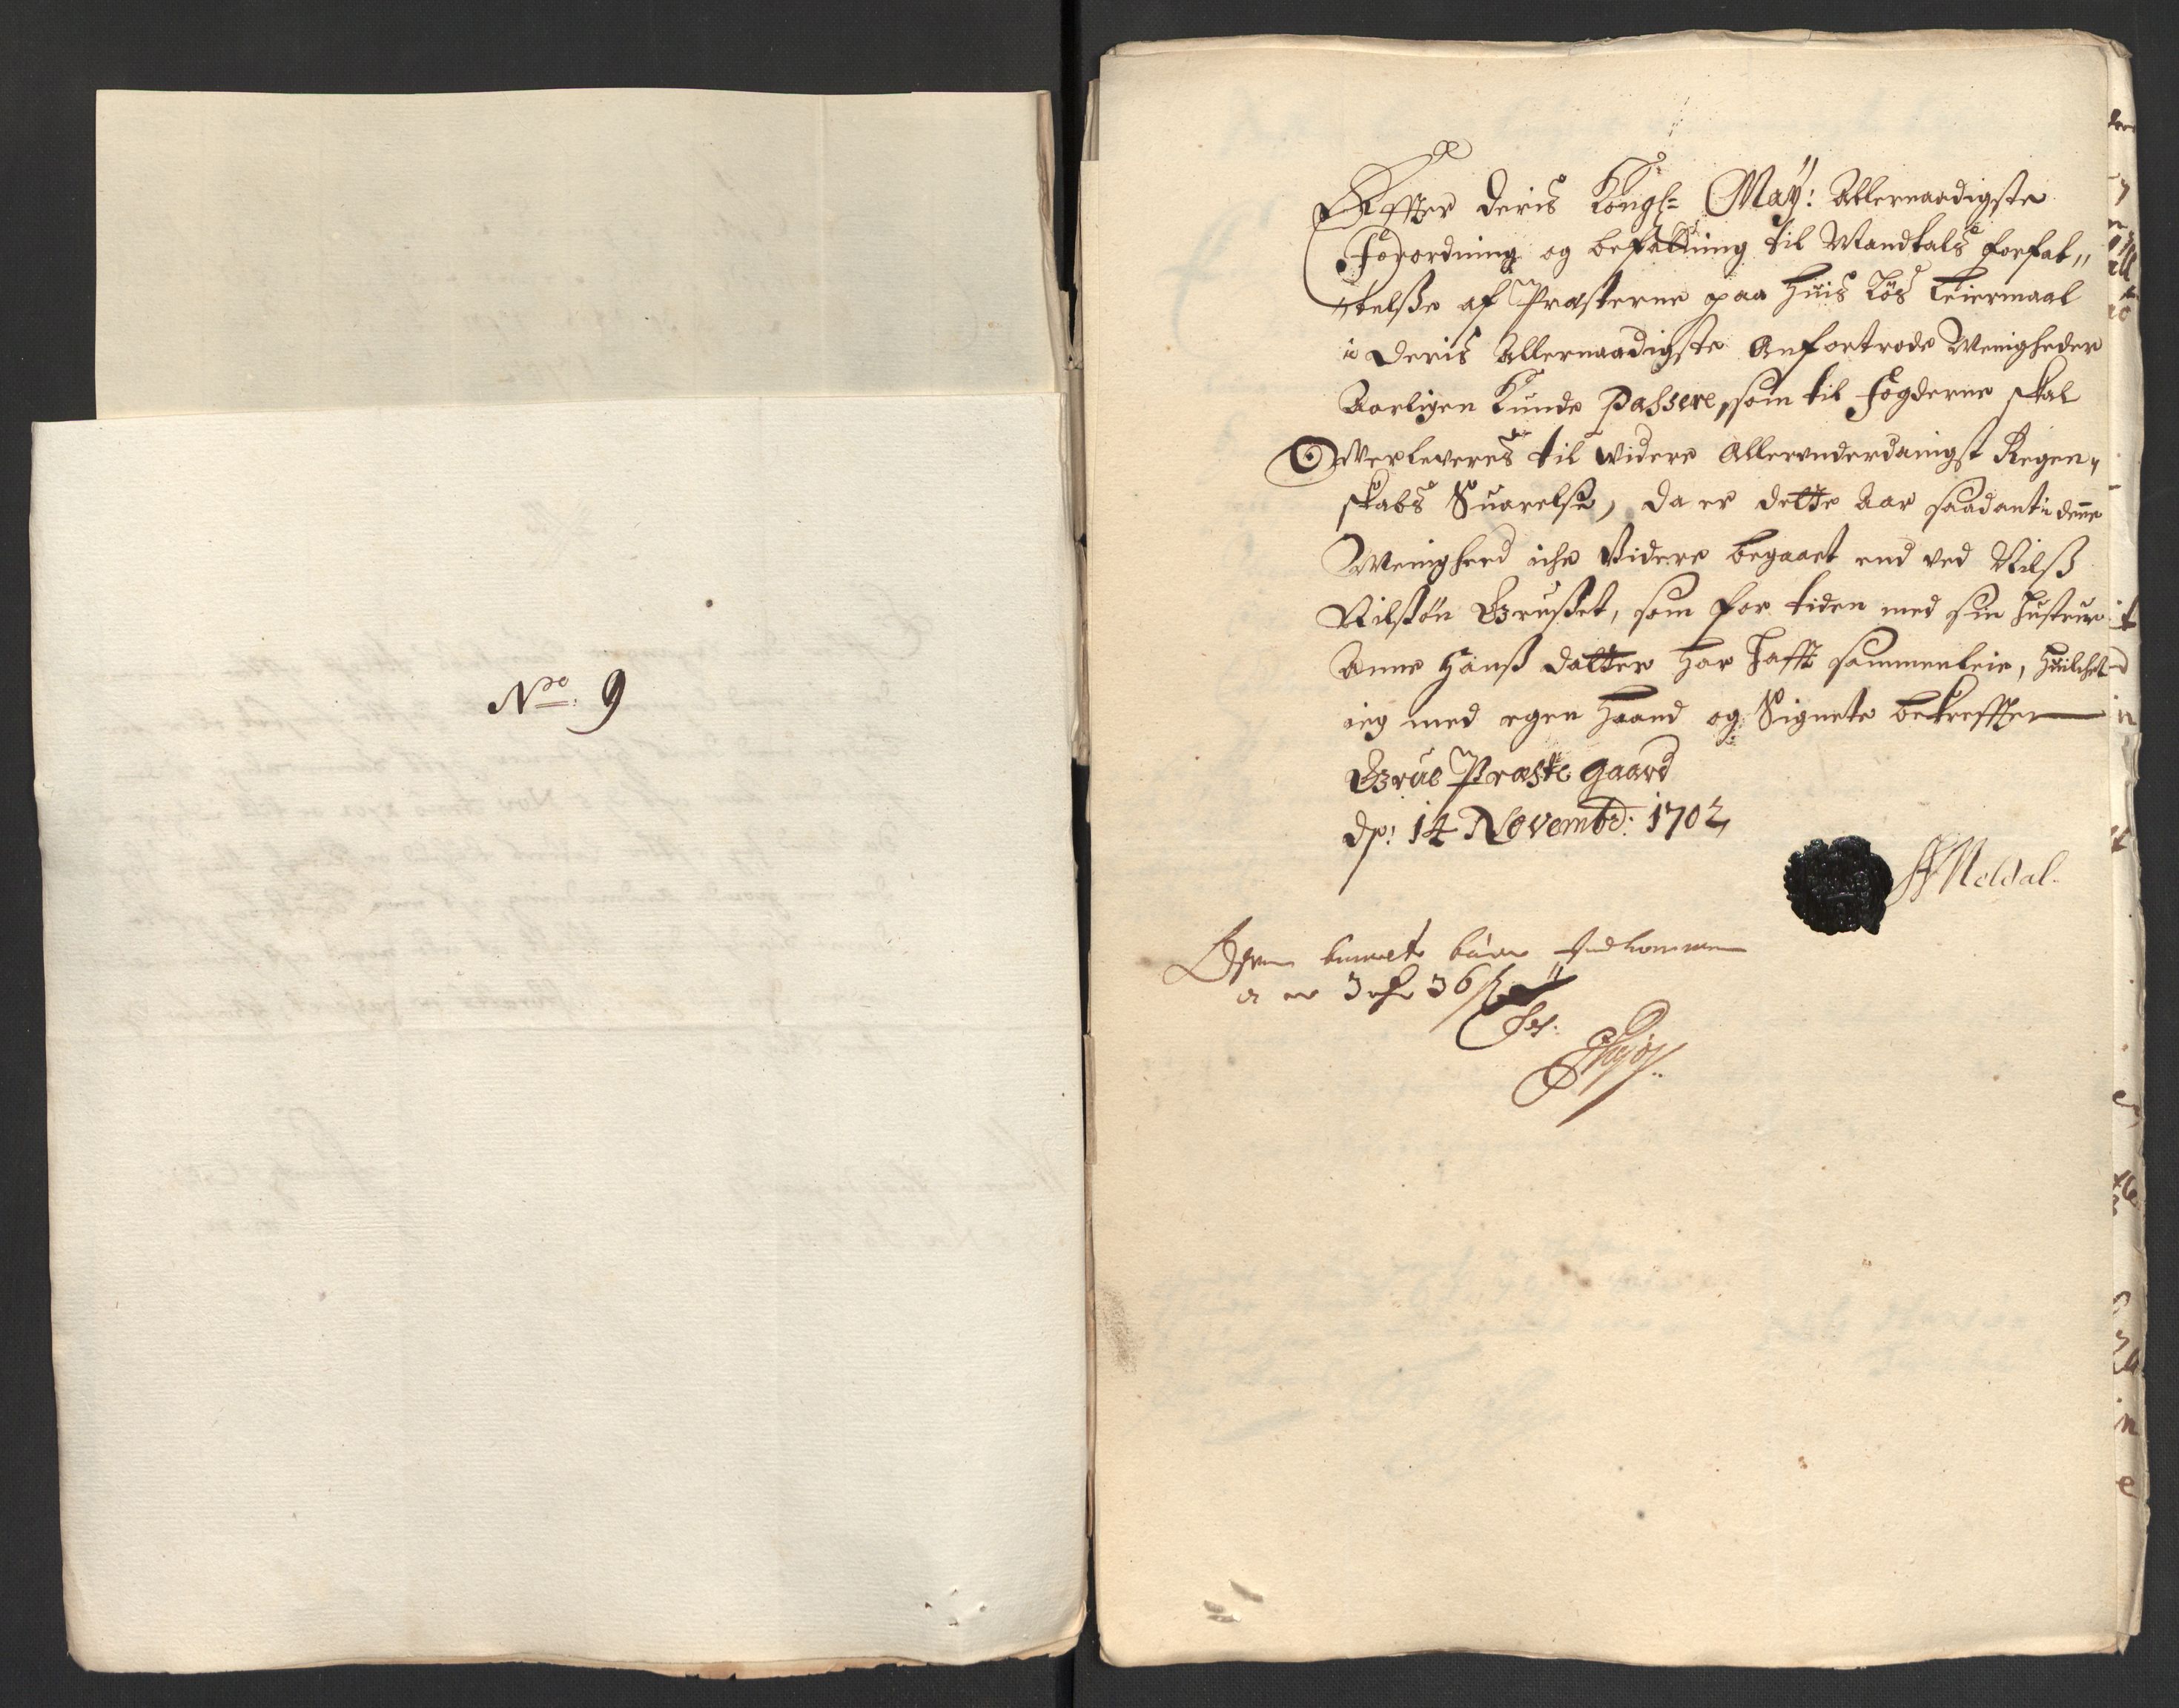 No: 9
Effter Deris Kongl: May: Allernaadigste
Forordning og befalning til Mandtals forfat„
„telsse af Præsterne paa huis Løs Leiermaal
i Deris Allernaadigste Anfortrode Menigheder
Aarligen Kunde Passere, som til fogderne skal
Owerleveres til widere Allerunderdanigst Regen„
skabs Suarelse, da er dette Aar saadant i denne
Menighed iche Videre begaaet end ved Nilss
Nilssøn Grusset, som for tiden med sin hustrue
Anne Hanss datter har hafft sammenleie, huilchet
ieg med egen Haand og Signete bekreffter
Grue Præste gaard
dn: 14 Novembr: 1702
Meldal.
bemelte indkommen
er 3 rdr 36 s